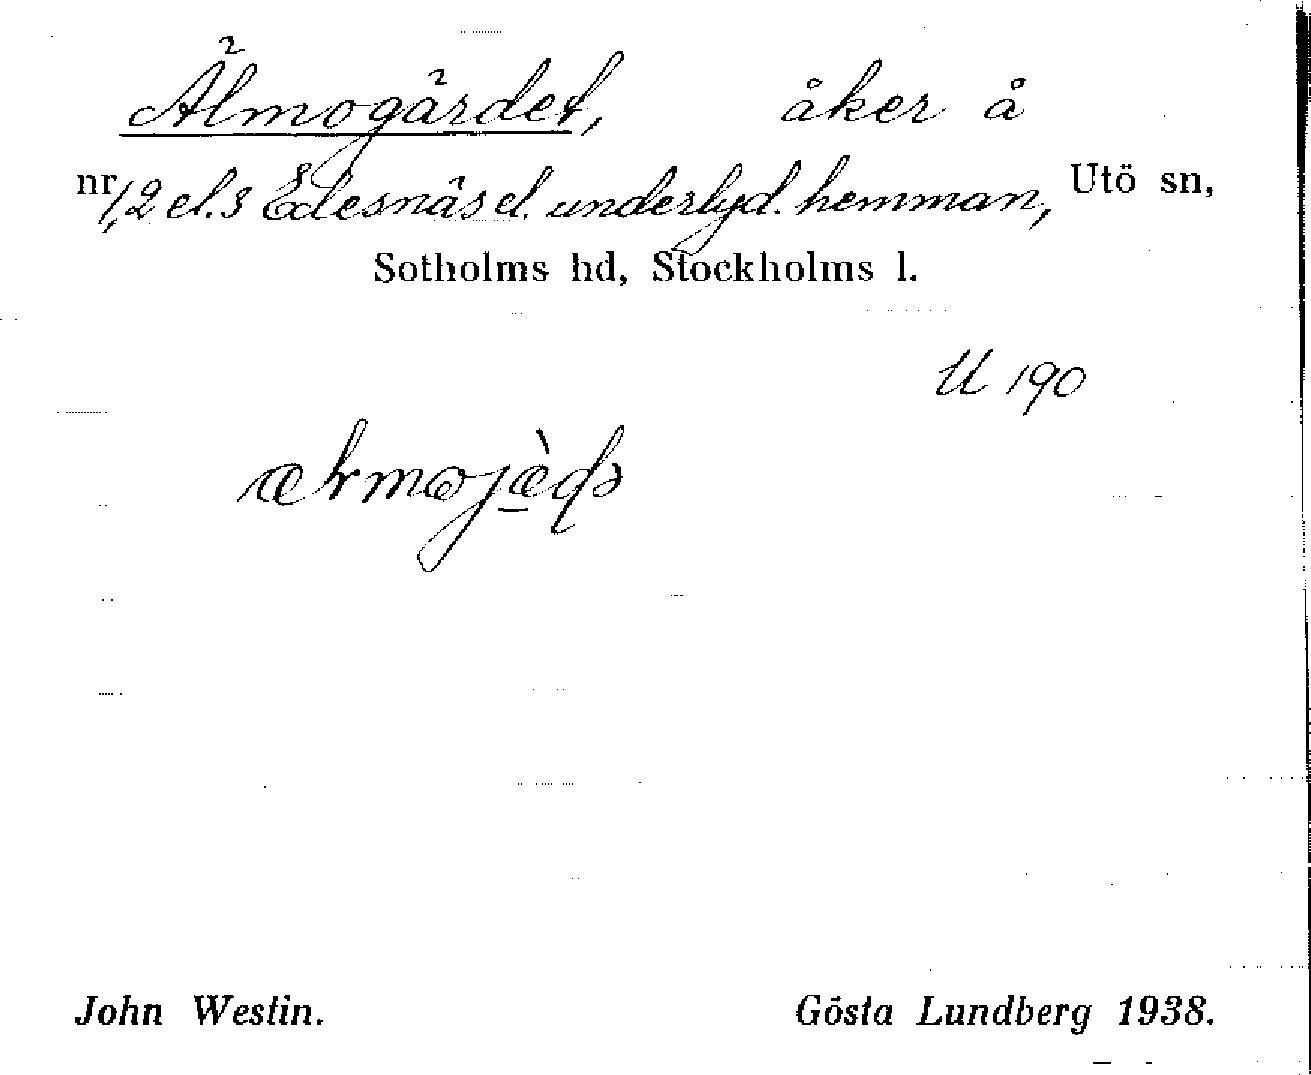 Älmogärdet, åker å
nr 1, 2 el. 3 Edesnäs el. underlyd. hemman, Utö sn,
Sotholms hd, Stockholms l.
U 190
John Westin. Gösta Lundberg 1938.